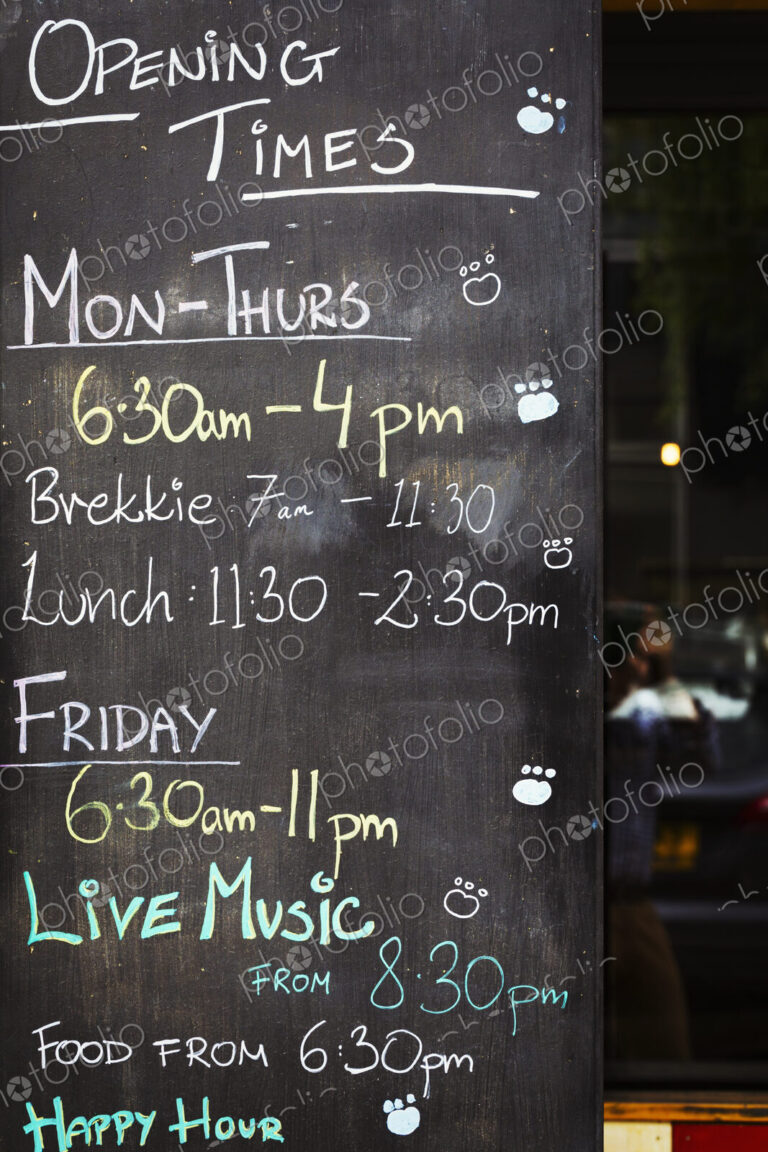 OPENING
TIMES
MON-THURS
6.30am - 4pm
Brekkie: 7am - 11:30
Lunch: 11:30 - 2:30pm
FRIDAY
6.30am-11pm
LIVE MUSIC
FROM 8.30pm
FOOD FROM 6:30pm
HAPPY HOUR
photofolio